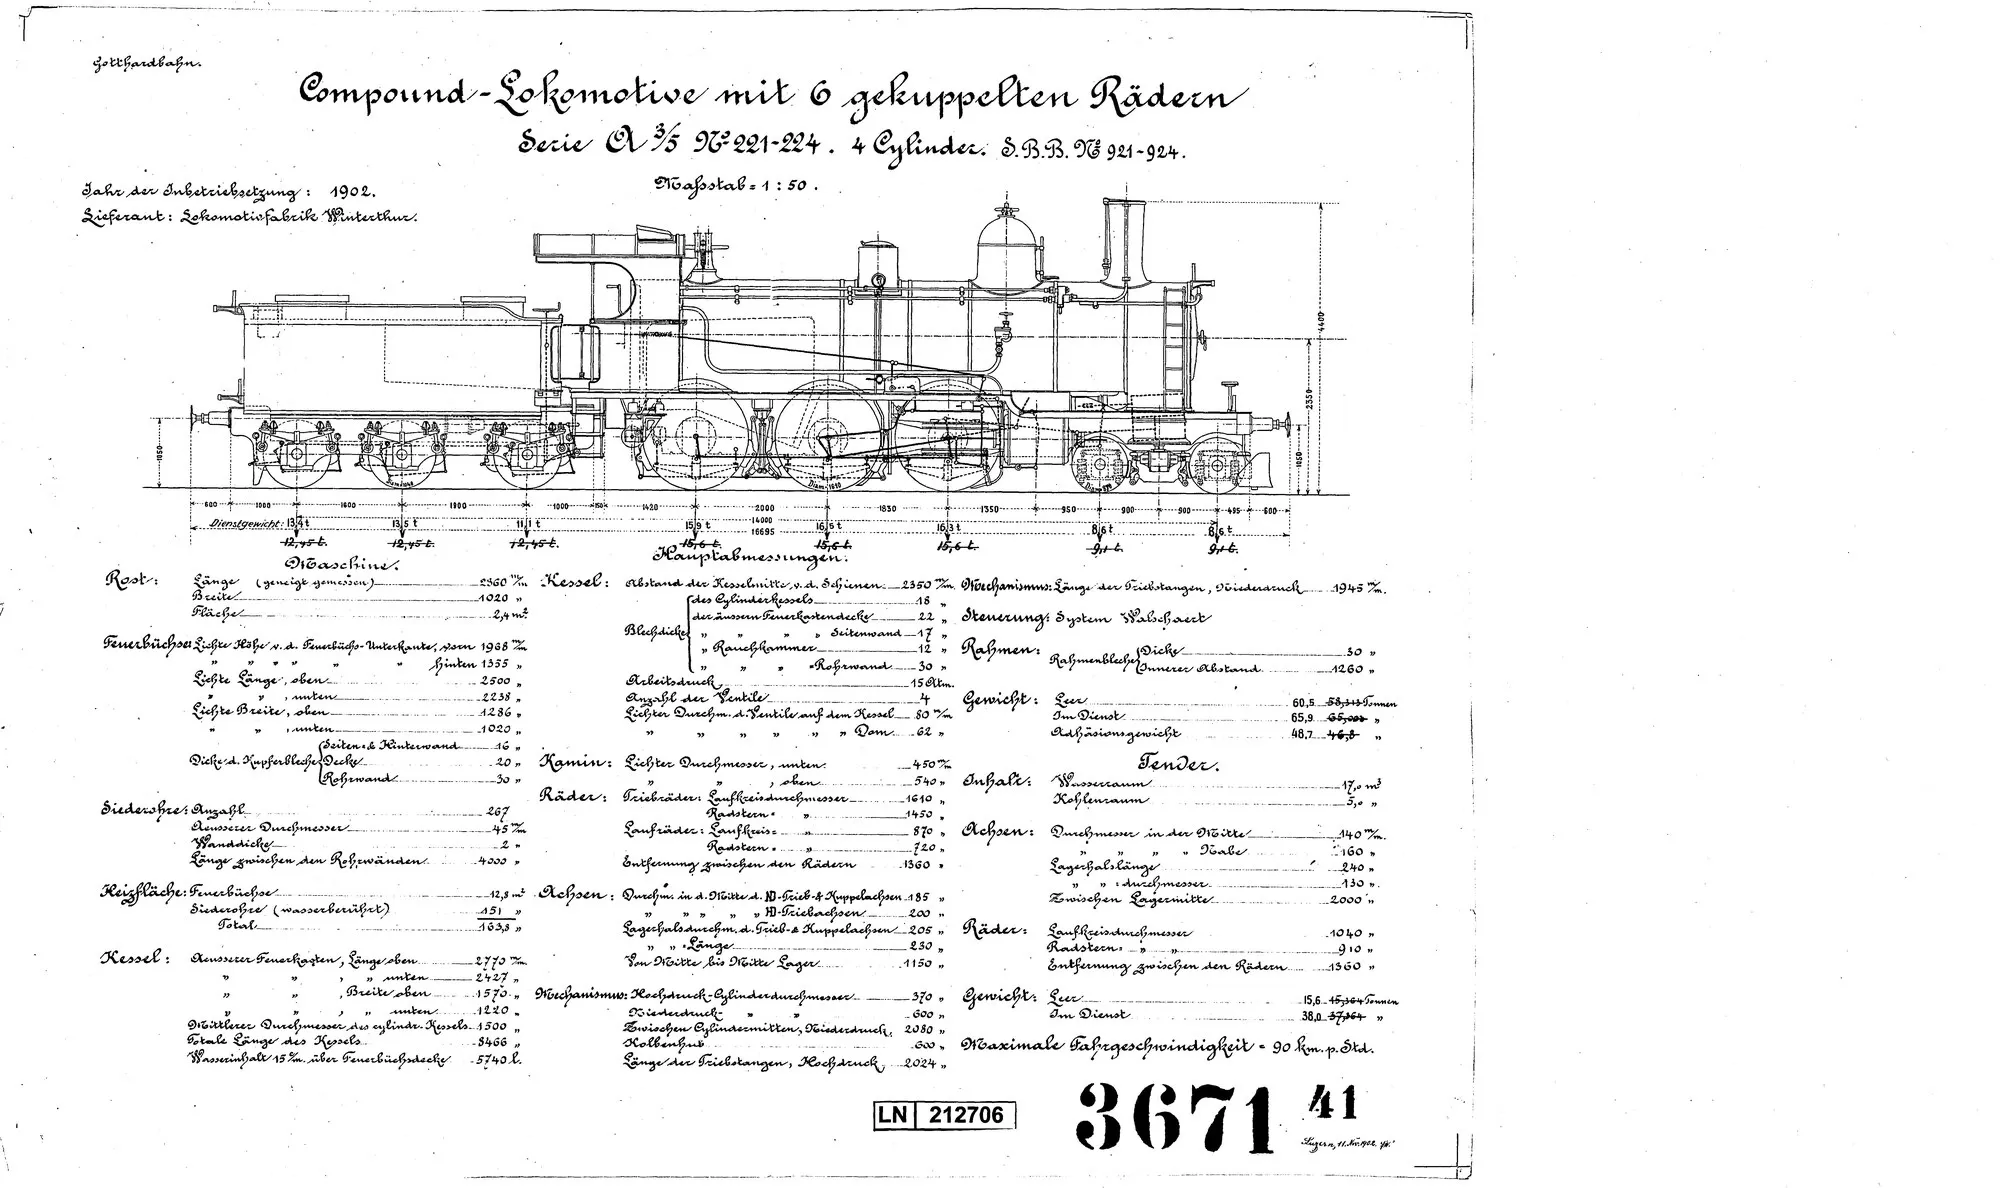 Gotthardbahn.
Compound-Lokomotive mit 6 gekuppelten Rädern
Serie A 3/5 No 221-224. 4 Cylinder. S.B.B. No 921-924.
Jahr der Inbetriebsetzung: 1902.
Maſsstab = 1:50.
Lieferant: Lokomotivfabrik Winterthur.
4400
2350
1050
1050
Diam=1610
600 1000 1600 1900 1000 150 1420 2000 1830 1350 950 900 900 495 600
14000
16695
Dienstgewicht: 13,4 t 13,5 t 11,1 t 15,9 t 16,5 t 16,3 t 8,6 t 8,6 t
12,45 t. 12,45 t. 12,45 t. 15,6 t. 15,6 t. 15,6 t. 9,1 t. 9,1 t.
Hauptabmessungen.
Maschine.
Rost: Länge (geneigt gemessen) 2360 m/m
Breite 1020 "
Fläche 2,4 m²
Feuerbüchse: Lichte Höhe v. d. Feuerbüchs-Unterkante, vorn 1968 m/m
" " " " " " hinten 1355 "
Lichte Länge, oben 2500 "
" " , unten 2238 "
Lichte Breite, oben 1286 "
" " , unten 1020 "
Dicke d. Kupferbleche Seiten- & Hinterwand 16 "
Decke 20 "
Rohrwand 30 "
Siederohre: Anzahl 267
Aeusserer Durchmesser 45 m/m
Wanddicke 2 "
Länge zwischen den Rohrwänden 4000 "
Heizfläche: Feuerbüchse 12,8 m²
Siederohre (wasserberührt) 151 "
Total 163,8 "
Kessel: Aeusserer Feuerkasten, Länge oben 2770 m/m
" " " unten 2427 "
" " , Breite oben 1570 "
" " , " unten 1220 "
Mittlerer Durchmesser des cylindr. Kessels 1500 "
Totale Länge des Kessels 8466 "
Wasserinhalt 15 c/m. über Feuerbüchsdecke 5740 l.
Kessel: Abstand der Kesselmitte v. d. Schienen 2350 m/m
Blechdicke des Cylinderkessels 18 "
der äussern Feuerkastendecke 22 "
" " " " Seitenwand 17 "
" Rauchkammer 12 "
" " " -Rohrwand 30 "
Arbeitsdruck 15 Atm.
Anzahl der Ventile 4
Lichter Durchm. d. Ventile auf dem Kessel 80 m/m
" " " " " " Dom 62 "
Kamin: Lichter Durchmesser, unten 450 m/m
" " , oben 540 "
Räder: Triebräder: Laufkreisdurchmesser 1610 "
Radstern- " 1450 "
Laufräder: Laufkreis- " 870 "
Radstern- " 720 "
Entfernung zwischen den Rädern 1360 "
Achsen: Durchm. in d. Mitte d. ND-Trieb- & Kuppelachsen 185 "
" " " " " HD-Triebachsen 200 "
Lagerhalsdurchm. d. Trieb- & Kuppelachsen 205 "
" " -Länge 230 "
Von Mitte bis Mitte Lager 1150 "
Mechanismus: Hochdruck-Cylinderdurchmesser 370 "
Niederdruck- " " 600 "
Zwischen Cylindermitten, Niederdruck, 2080 "
Kolbenhub 600 "
Länge der Triebstangen, Hochdruck, 2024 "
Mechanismus: Länge der Triebstangen, Niederdruck 1945 m/m.
Steuerung: System Walschaert
Rahmen: Rahmenbleche Dicke 30 "
Innerer Abstand 1260 "
Gewicht: Leer 60,5 58,313 Tonnen
Im Dienst 65,9 65,000 "
Adhäsionsgewicht 48,7 46,8 "
Tender.
Inhalt: Wasserraum 17,0 m³
Kohlenraum 5,0 "
Achsen: Durchmesser in der Mitte 140 m/m.
" " " " Nabe 160 "
Lagerhalslänge 240 "
" " -durchmesser 130 "
Zwischen Lagermitte 2000 "
Räder: Laufkreisdurchmesser 1040 "
Radstern- " " 910 "
Entfernung zwischen den Rädern 1360 "
Gewicht: Leer 15,6 15,364 Tonnen
Im Dienst 38,0 37,364 "
Maximale Fahrgeschwindigkeit = 90 km. p. Std.
LN 212706
3671 41
Luzern, 11. Nov. 1902.